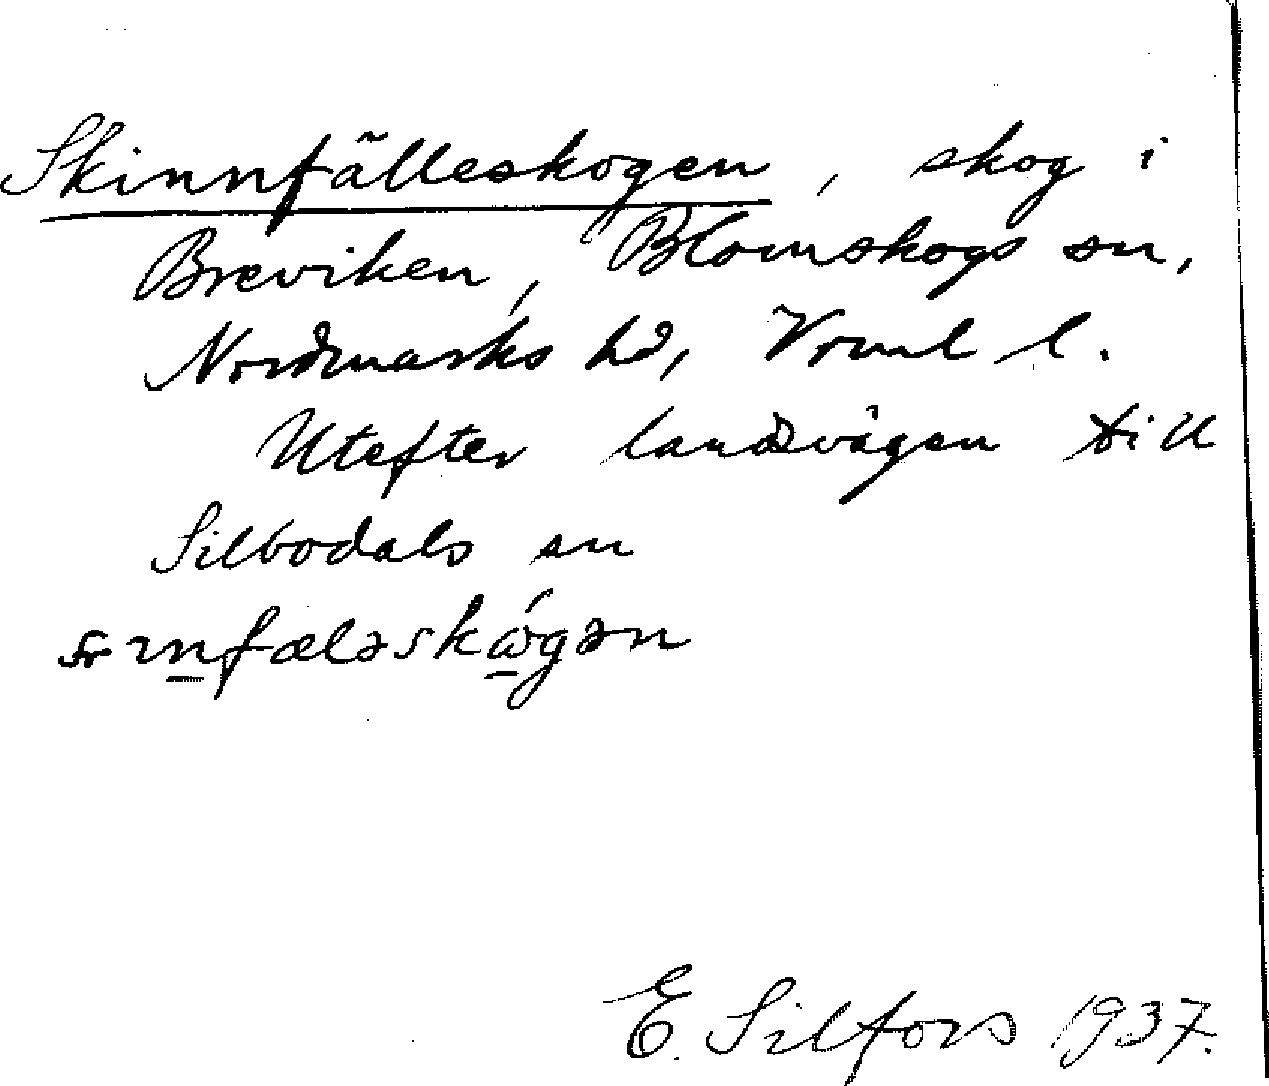 Skinnfälleskogen, skog i
Breviken, Blomskogs sn,
Nordmarks hd, Vrml l.
Utefter landsvägen till
Silbodals sn
E. Silfors 1937.